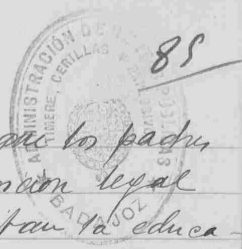 85
ADMINISTRACIÓN DE
TIMBRE, CERILLAS Y
BADAJOZ
que los padres
legal
tan la educa-